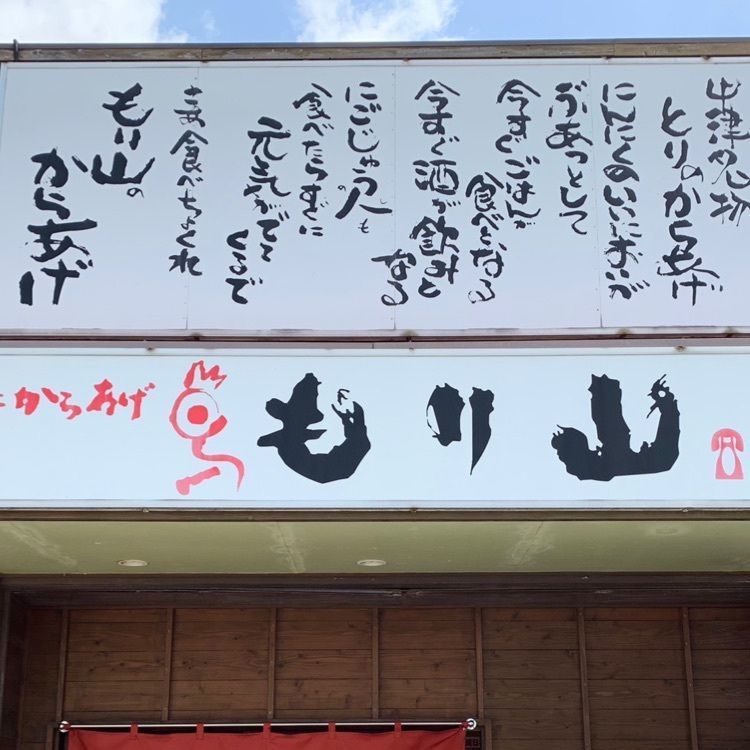 中津めし物
とりのからあげ
にんにくのいいにおいが
ぷあっとして
今すぐごはんが
食べとなる
今すぐ酒が飲みと
なる
にごじゅう人も
食べたらすぐに
元気がでて
くるで
さあ食べちょくれ
もり山の
からあげ
からあげ
もり山